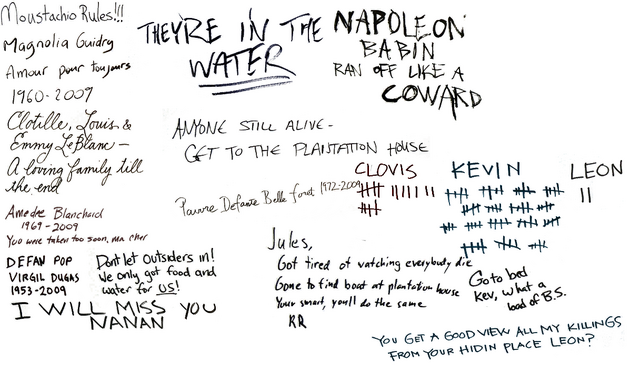 Moustachio Rules!!!
Magnolia Guidry
Amour pour toujours
1960-2009
Clotille, Louis &
Emmy LeBlanc —
A loving family till
the end
Amedee Blanchard
1969-2009
You were taken too soon, mon cher
DEFAN POP
VIRGIL DUGAS
1953-2009
Dont let outsiders in!
We only got food and
water for US!
I WILL MISS YOU
NANAN
THEY'RE IN THE
WATER
NAPOLEON
BABIN
RAN OFF LIKE A
COWARD
ANYONE STILL ALIVE-
GET TO THE PLANTATION HOUSE
Defante Belle foret 1972-2009
CLOVIS
KEVIN
LEON
Jules,
Got tired of watching everybody die
Gone to find boat at plantation house
Your smart, you'll do the same
RR
Go to bed
Kev, what a
load of B.S.
YOU GET A GOOD VIEW ALL MY KILLINGS
FROM YOUR HIDIN PLACE LEON?